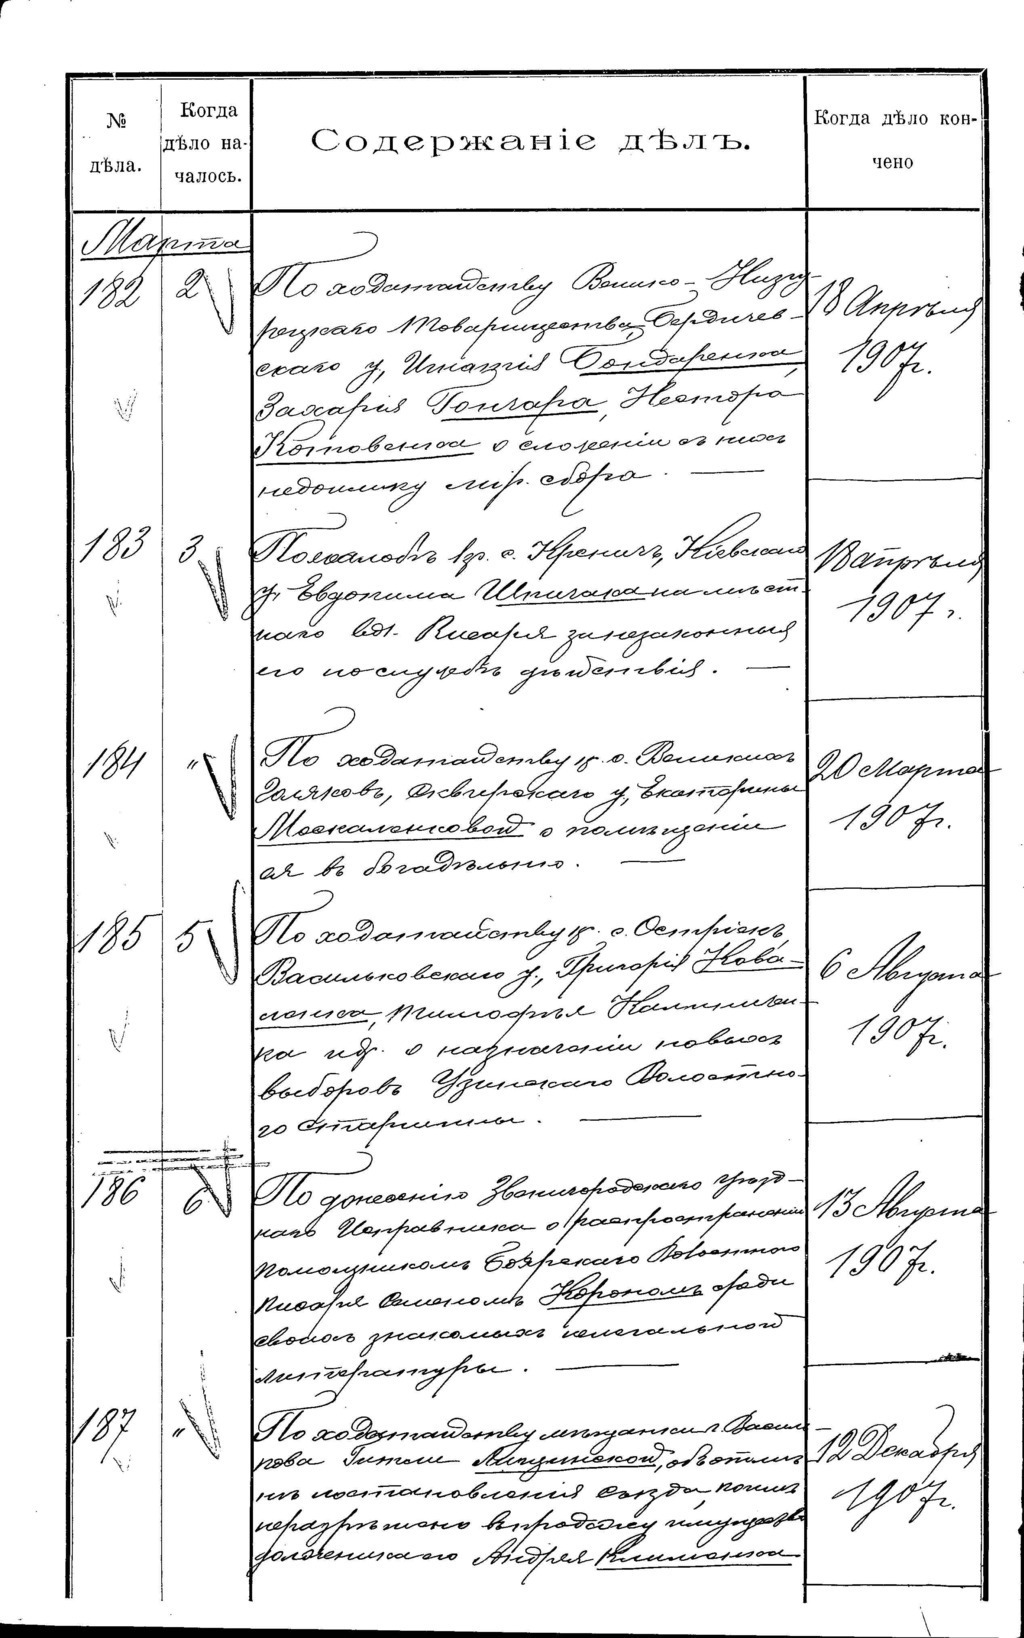 № дѣла.
Когда дѣло на-
чалось.
Содержаніе дѣлъ.
Когда дѣло кон-
чено
Марта
182 2 По ходатайству Велико-Низгу
рецкаго Товарищества, Бердичев-
скаго у, Игнатія Бондаренка
Захарія Гончара, Нестора
Котовенка о сложеніи съ нихъ
недоимку мір. сбора. —
18 Апрѣля
1907 г.
183 3 По жалобѣ кр. с. Креничъ, Кіевскаго
у, Евдокима Шпичака на мѣст-
наго вол. Писаря за незаконныя
его по службѣ дѣйствія. —
18 апрѣля
1907 г.
184 " По ходатайству кр. с. Великихъ
Гуляковъ, Сквирскаго у, Екатерины
Москаленковой о помѣщеніи
ея въ богадѣльню. —
20 Марта
1907 г.
185 5 По ходатайству кр. с. Острієкъ,
Васильковскаго у., Григорія Кова-
ленка, Тимофѣя
ка и др. о назначеніи новыхъ
выборовъ Узинскаго Волостно-
го Старшины. —
6 Августа
1907 г.
186 6 По донесенію Звенигородскаго уѣзд-
наго Исправника о распространеніи
помощникомъ Боярскаго Волостного
Писаря Семеномъ Корономъ среди
своихъ знакомыхъ нелегальной
литературы. —
13 Августа
1907 г.
187 " По ходатайству мѣщанки г. Василь-
кова Гитли Линцинской, объ отмѣ
нѣ постановленія Съѣзда, коимъ
неразрѣшено въ продажу имущества
должника его Андрея Клименка
12 Декабря
1907 г.